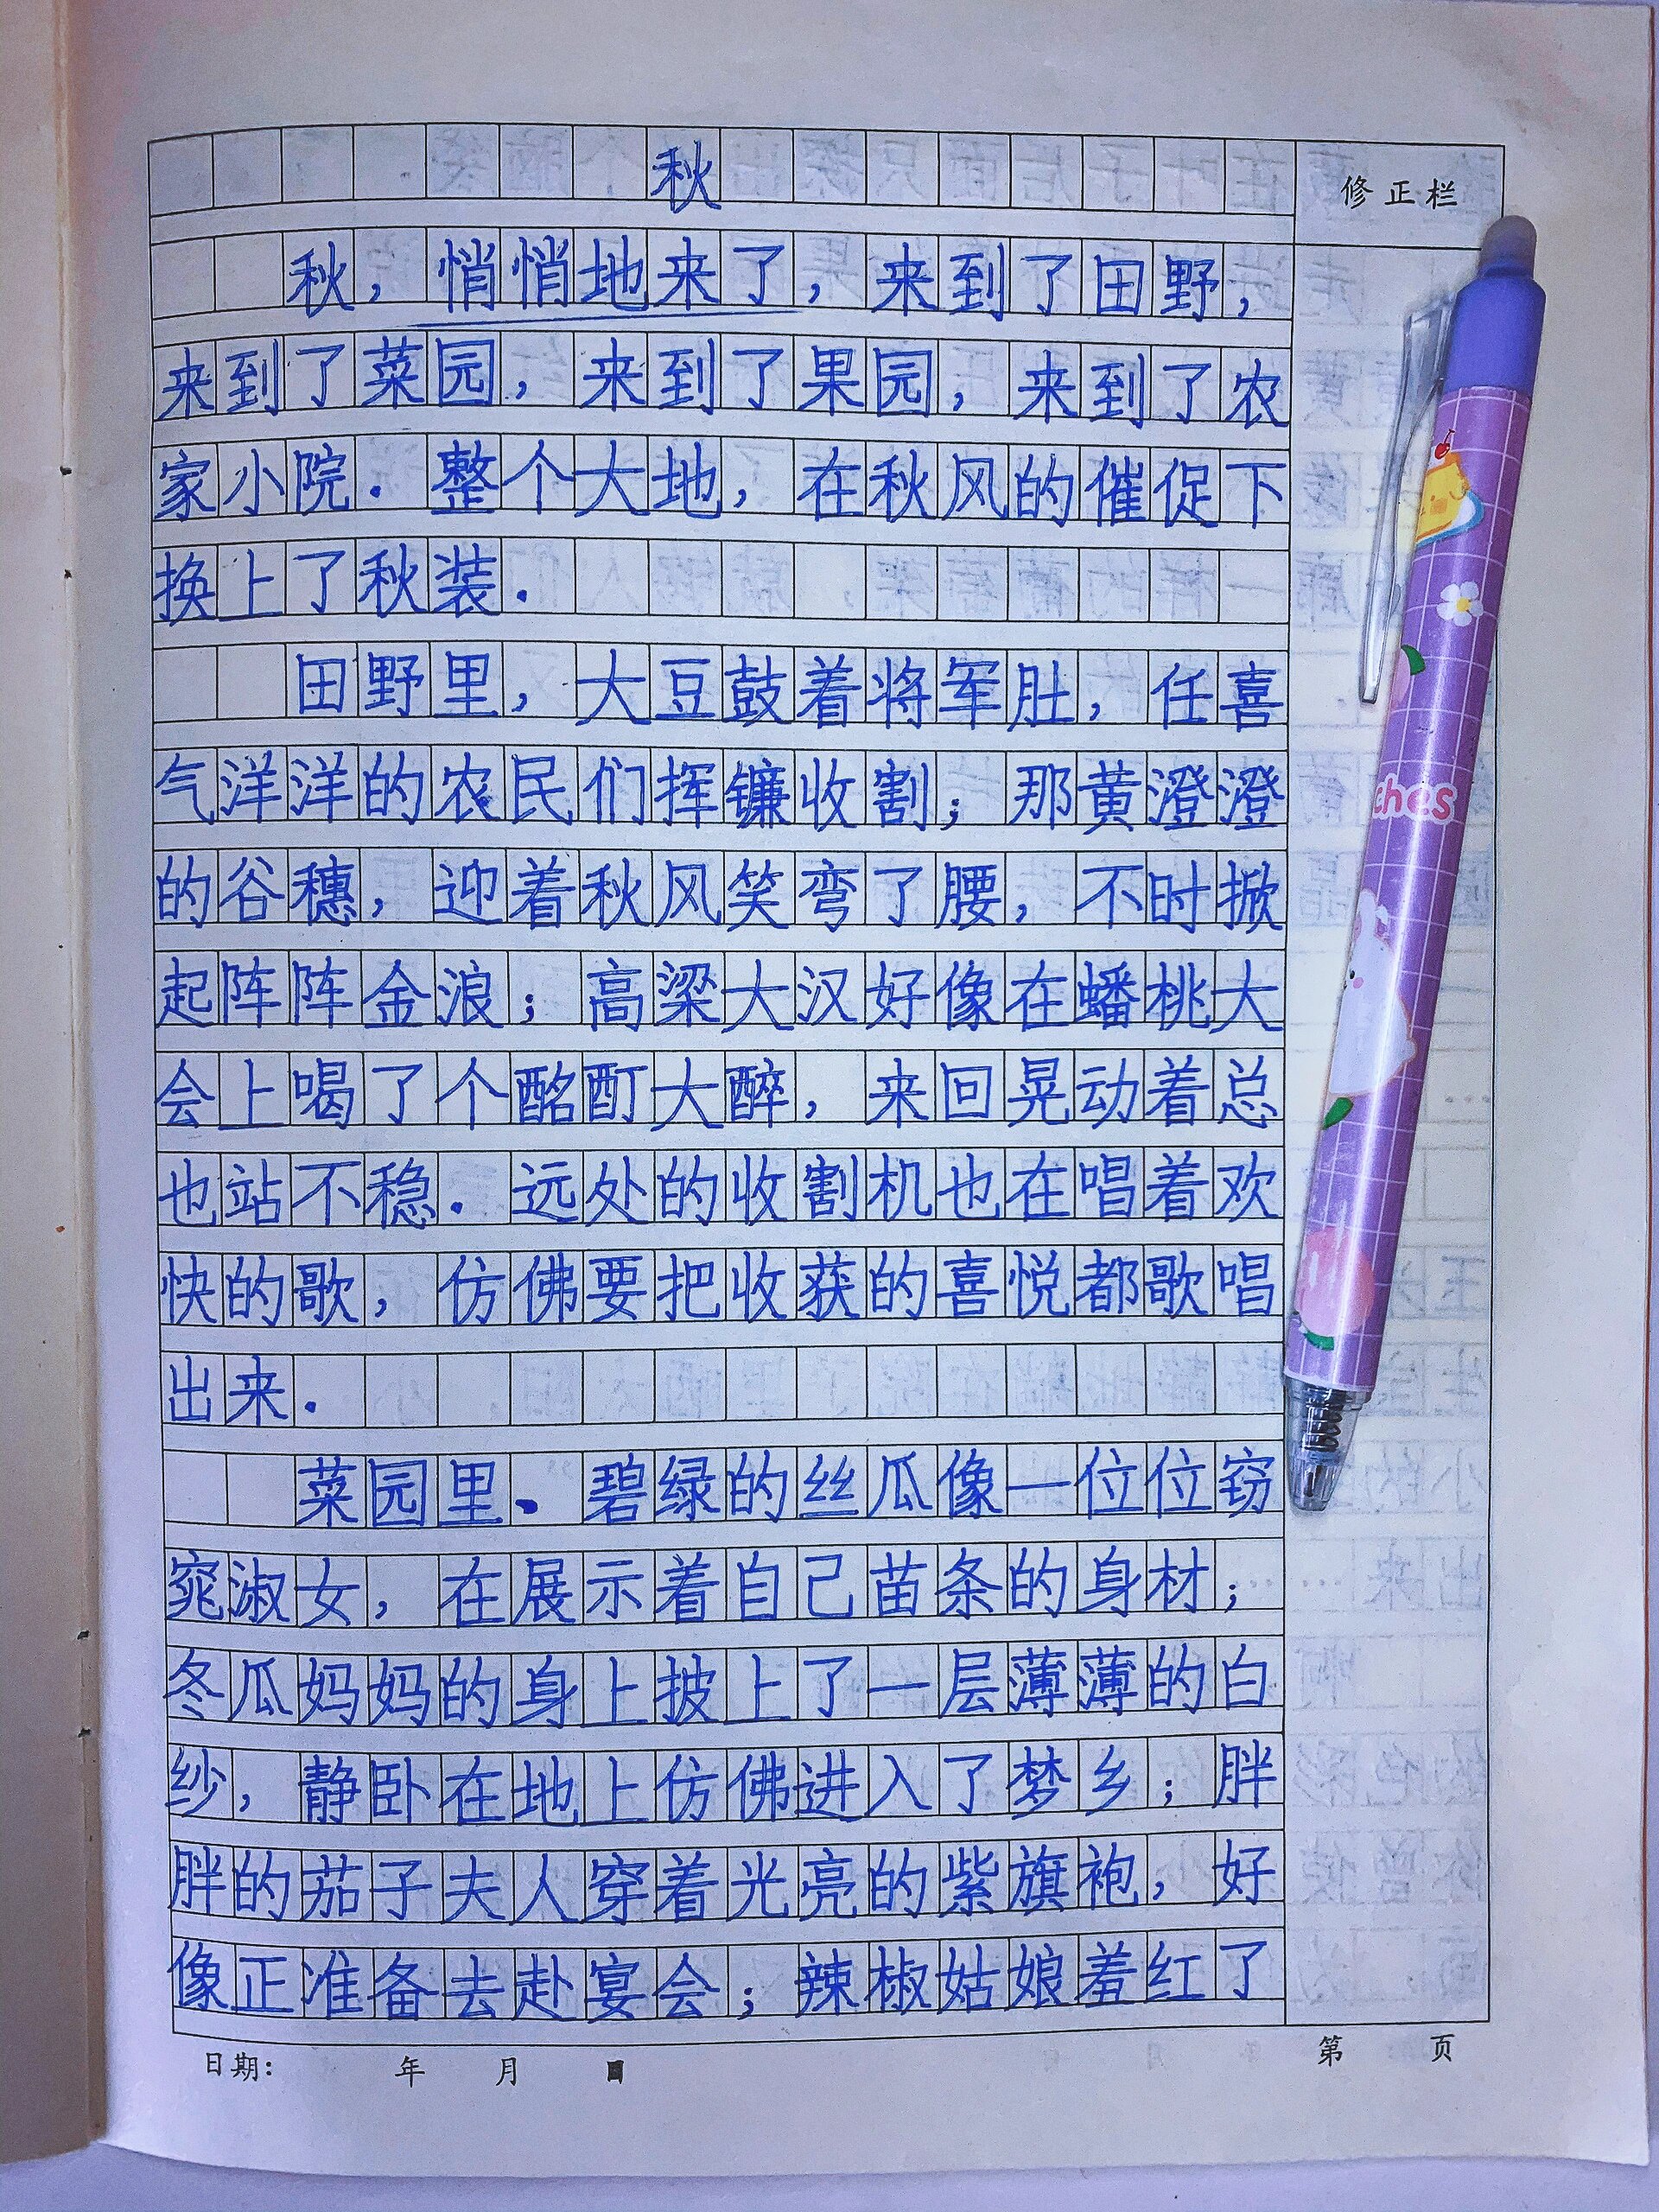 秋
修正栏
秋，悄悄地来了，来到了田野，
来到了菜园，来到了果园，来到了农
家小院．整个大地，在秋风的催促下
换上了秋装．
田野里，大豆鼓着将军肚，任喜
气洋洋的农民们挥镰收割；那黄澄澄
的谷穗，迎着秋风笑弯了腰，不时掀
起阵阵金浪；高梁大汉好像在蟠桃大
会上喝了个酩酊大醉，来回晃动着总
也站不稳．远处的收割机也在唱着欢
快的歌，仿佛要把收获的喜悦都歌唱
出来．
菜园里．碧绿的丝瓜像一位位窈
窕淑女，在展示着自己苗条的身材；
冬瓜妈妈的身上披上了一层薄薄的白
纱，静卧在地上仿佛进入了梦乡；胖
胖的茄子夫人穿着光亮的紫旗袍，好
像正准备去赴宴会；辣椒姑娘羞红了
日期： 年 月 日
第 页
ches